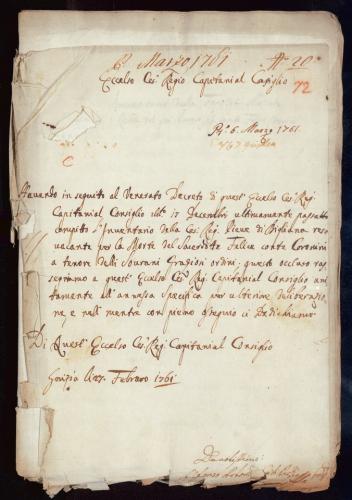 6 Marzo 1761 N° 20
Eccelso Ces Regio Capitanial Consiglio
72
Pr 6. Marzo 1761
C
Havendo in seguito al Venerato Decreto di quest' Eccelso Ces Reg
Capitanial Consiglio 17 Decembre ultimamente passato
compito l'Inventario della Ces Reg Pieve di Bigliana reso
vacante per la Morte del Sacerdote Felice Conte Coronini
a tenore delli Sourani Graziosi ordini, questo occluso ras
segniamo a quest' Eccelso Ces Reg Capitanial Consiglio uni
tamente all' annessa Specifica per ulteriore deliberazio
ne e nell' mentre con pieno ossequio ci dedichiamo
Di Quest' Eccelso Ces Reg Capitanial Consiglio
Gorizia li Febraro 1761